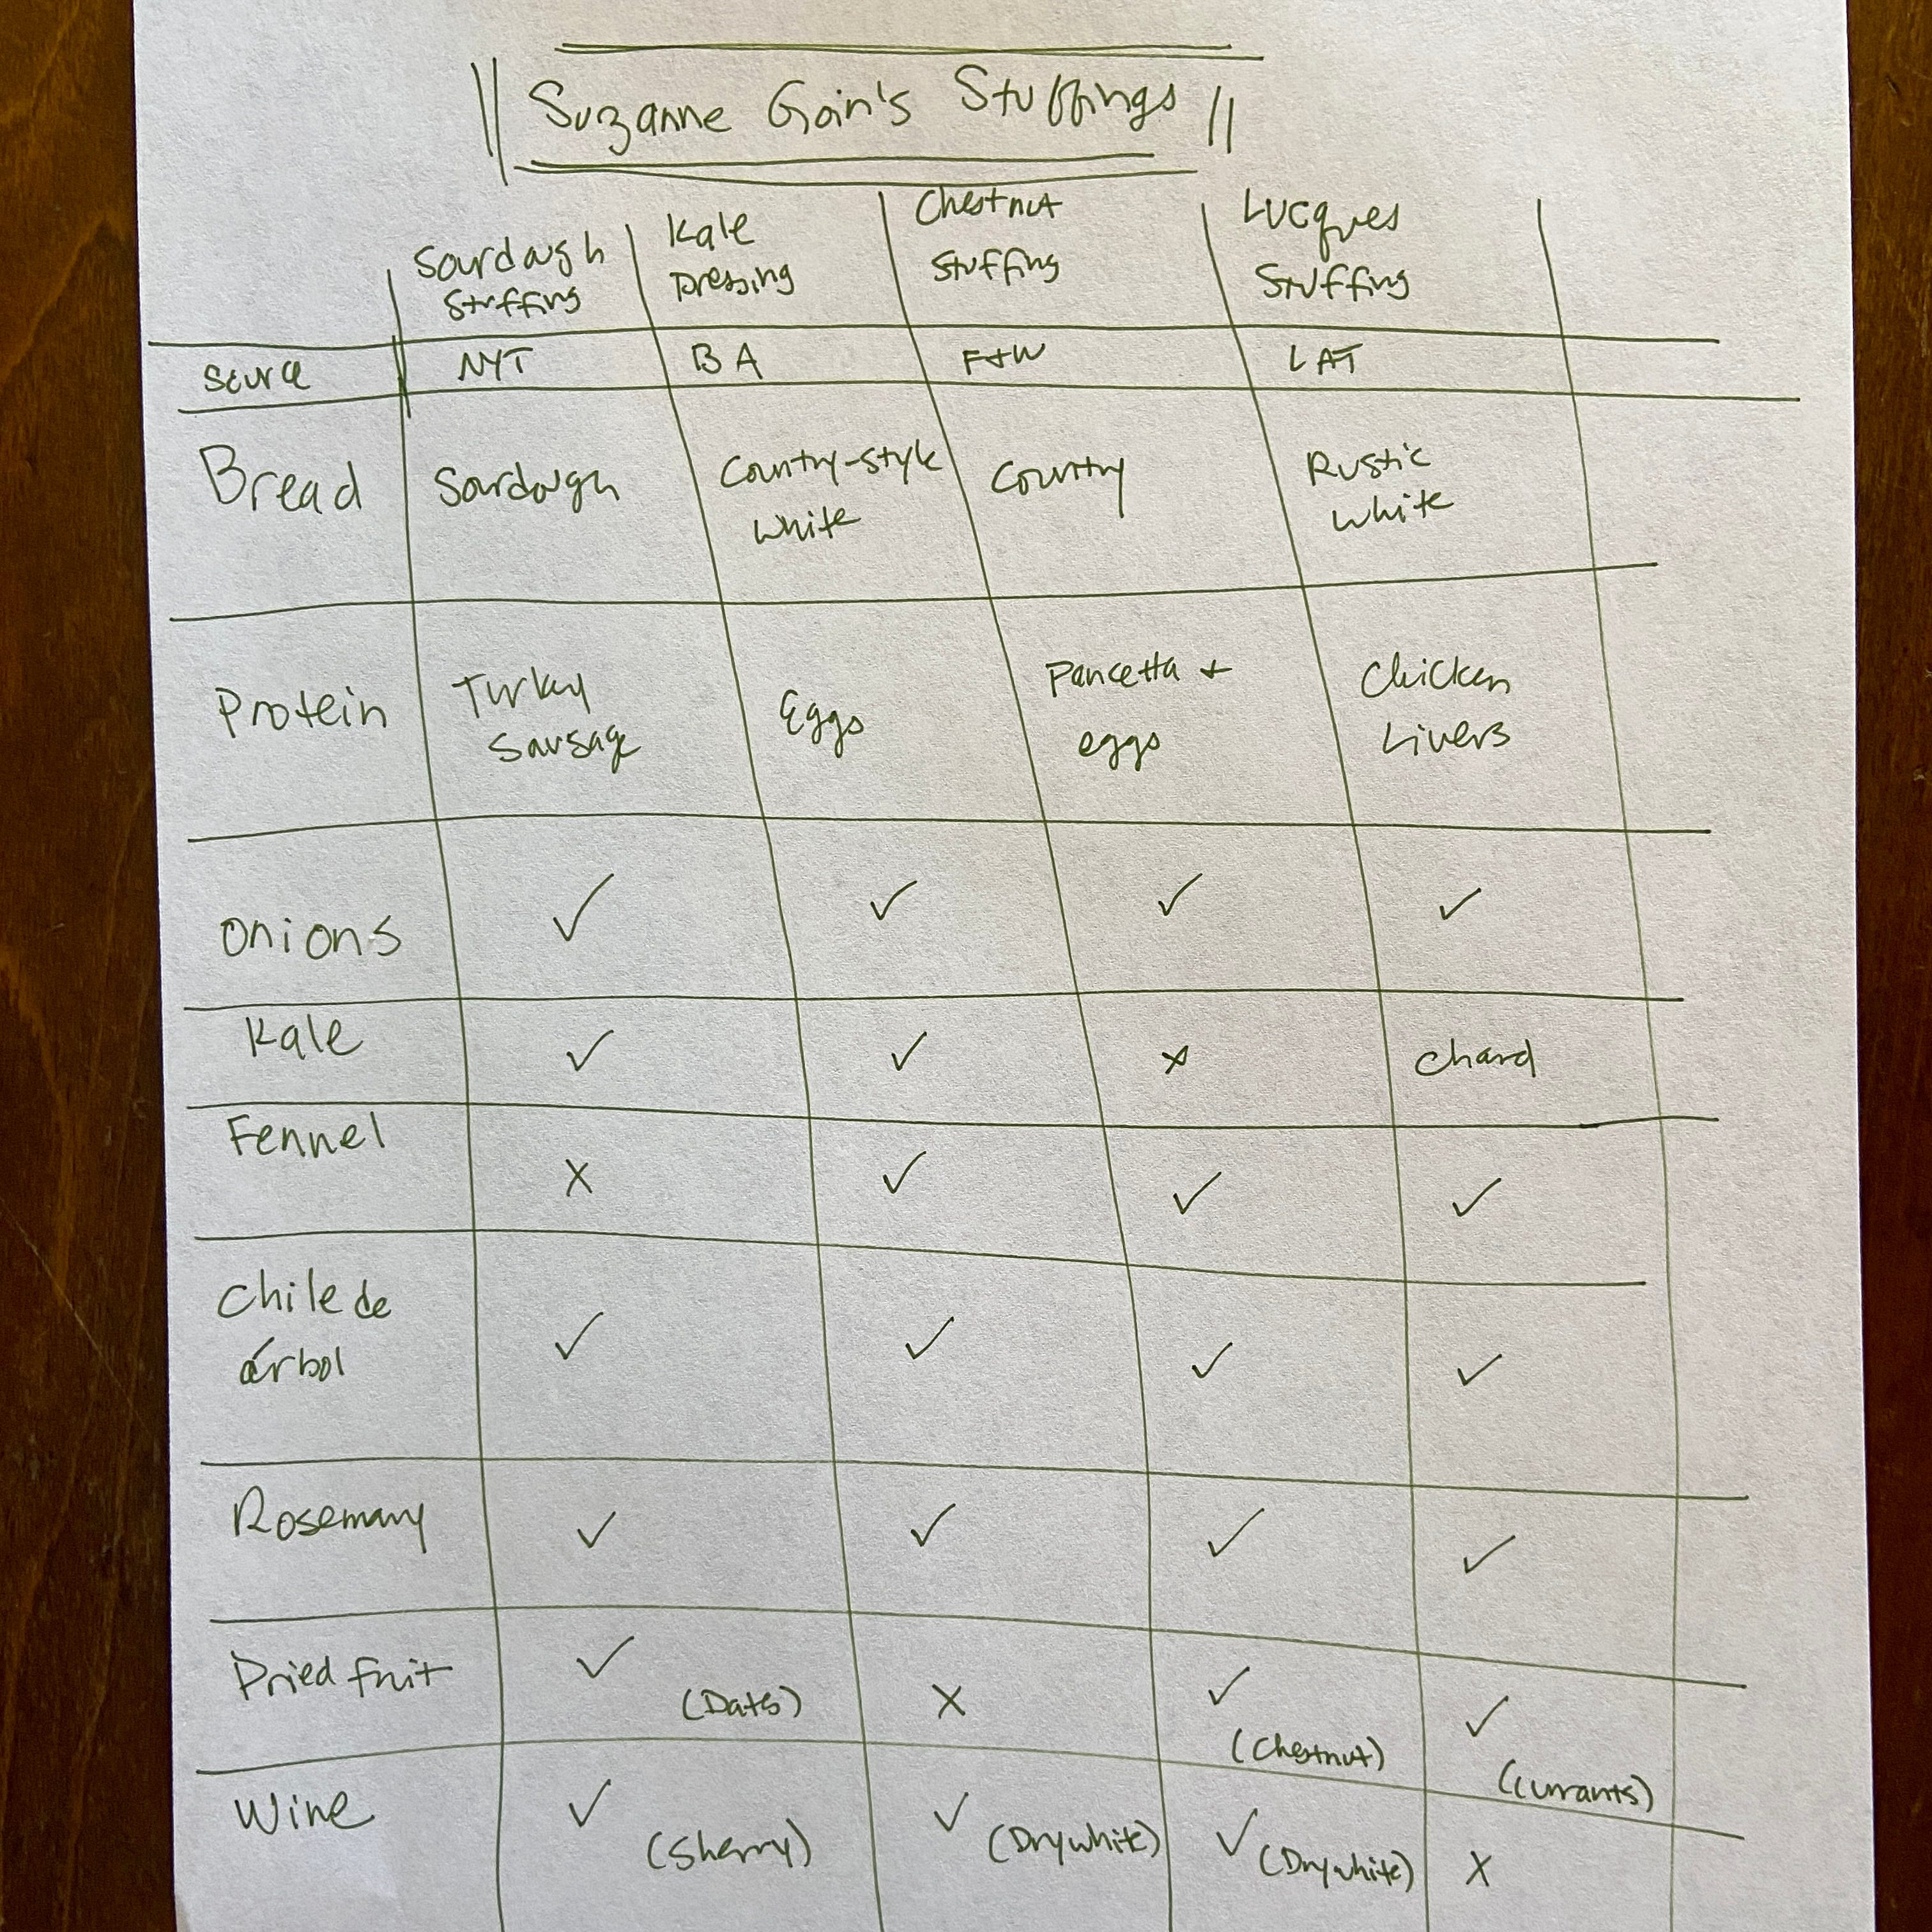 Suzanne Goin's Stuffings
Sourdough Stuffing | Kale Dressing | Chestnut Stuffing | Lucques Stuffing
Source | NYT | BA | F+W | LAT
Bread | Sourdough | Country-style white | Country | Rustic white
Protein | Turkey Sausage | Eggs | Pancetta + eggs | Chicken Livers
Onions | ✓ | ✓ | ✓ | ✓
Kale | ✓ | ✓ | x | Chard
Fennel | X | ✓ | ✓ | ✓
Chile de árbol | ✓ | ✓ | ✓ | ✓
Rosemary | ✓ | ✓ | ✓ | ✓
Dried fruit | ✓ (Dates) | X | ✓ (Chestnut) | ✓ (Currants)
Wine | ✓ (Sherry) | ✓ (Dry white) | ✓ (Dry white) | X